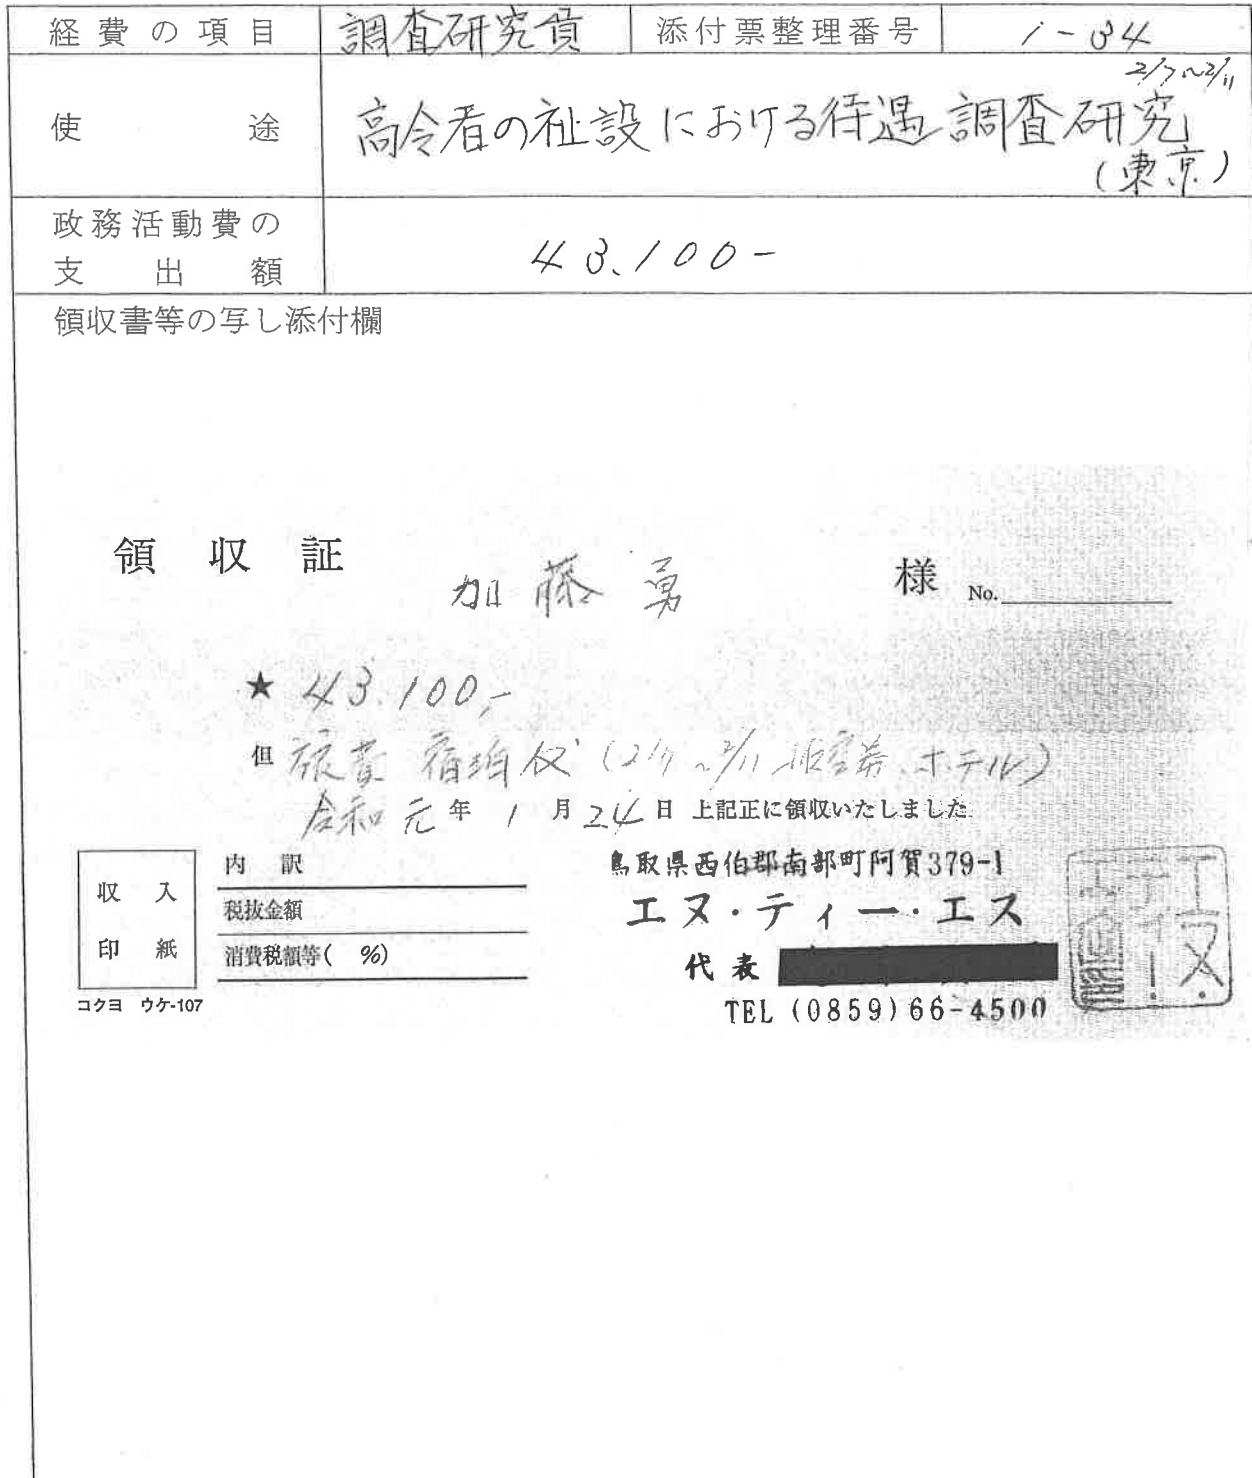 経費の項目 調査研究費 添付票整理番号 1-34
2/7~2/11
使途 高令者の祉設における待遇調査研究
(東京)
政務活動費の
支出額 43.100-
領収書等の写し添付欄
領収証 加藤勇 様 No.
★ 43.100,-
但 旅費 宿泊代 (2/7~2/11 航空券、ホテル)
令和元年1月24日 上記正に領収いたしました
収入
印紙
内訳
税抜金額
消費税額等( %)
コクヨ ウケ-107
鳥取県西伯郡南部町阿賀379-1
エヌ・ティー・エス
代表
TEL (0859)66-4500